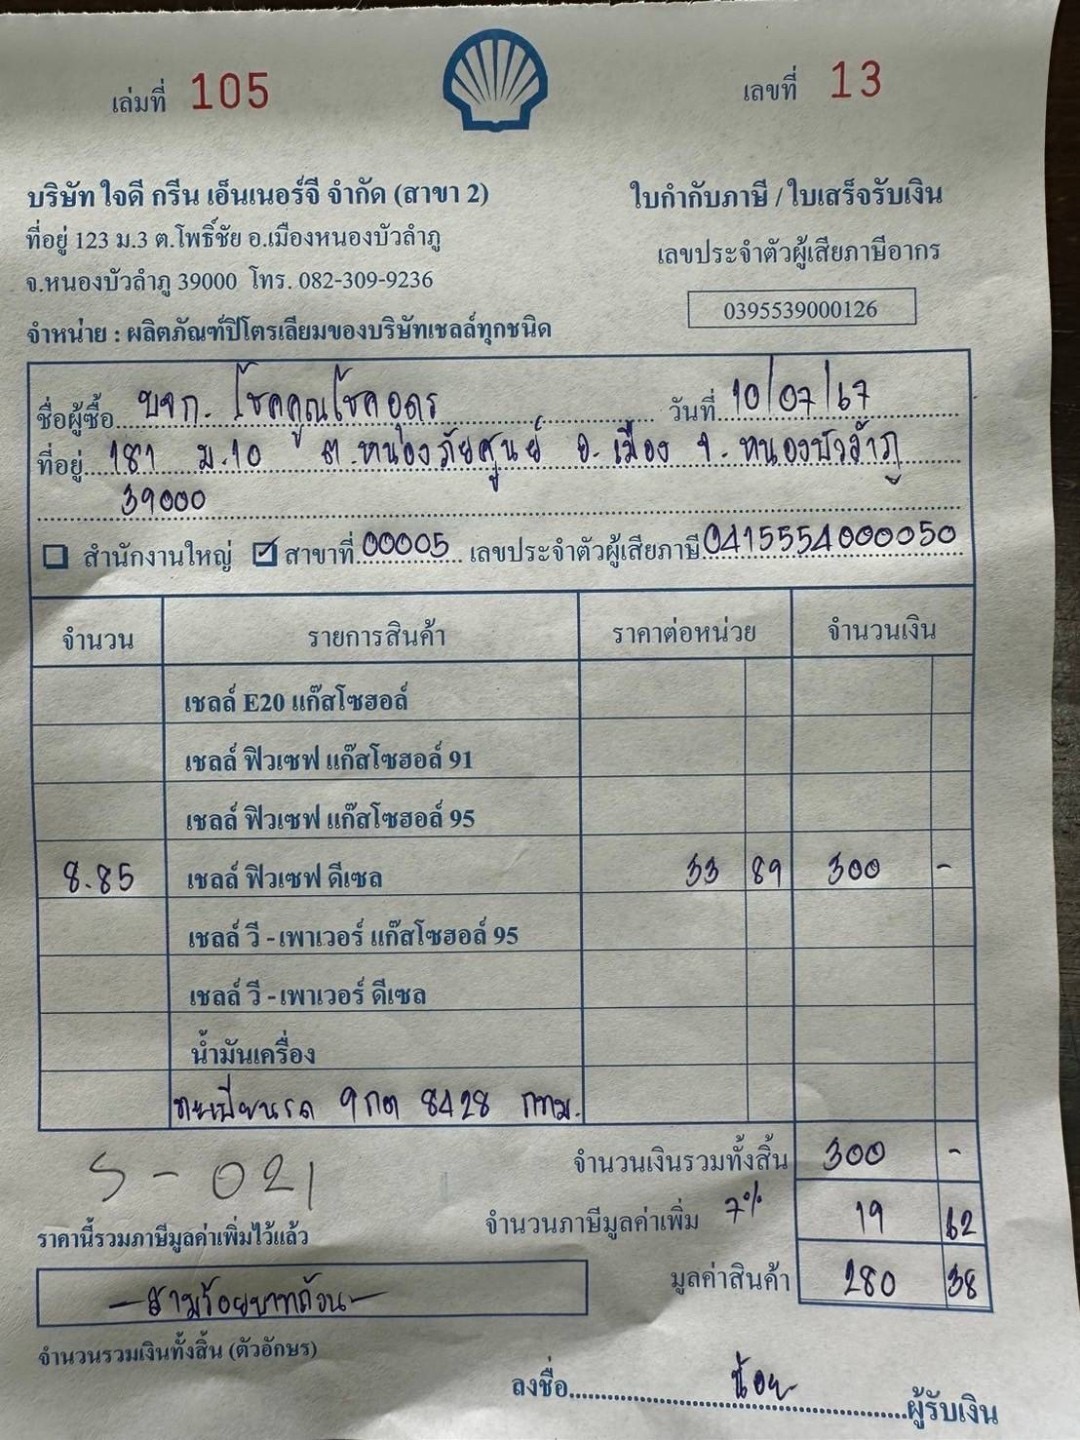 เล่มที่ 105
เลขที่ 13
บริษัท ใจดี กรีน เอ็นเนอร์จี จำกัด (สาขา 2)
ใบกำกับภาษี / ใบเสร็จรับเงิน
ที่อยู่ 123 ม.3 ต.โพธิ์ชัย อ.เมืองหนองบัวลำภู
เลขประจำตัวผู้เสียภาษีอากร
จ.หนองบัวลำภู 39000 โทร. 082-309-9236
0395539000126
จำหน่าย : ผลิตภัณฑ์ปิโตรเลียมของบริษัทเชลล์ทุกชนิด
ชื่อผู้ซื้อ บจก. โชคคูณโชคอุดร วันที่ 10/07/67
ที่อยู่ 181 ม.10 ต.หนองภัยศูนย์ อ.เมือง จ.หนองบัวลำภู
39000
สำนักงานใหญ่ ☑ สาขาที่ 00005 เลขประจำตัวผู้เสียภาษี 0415554000050
จำนวน รายการสินค้า ราคาต่อหน่วย จำนวนเงิน
เชลล์ E20 แก๊สโซฮอล์
เชลล์ ฟิวเซฟ แก๊สโซฮอล์ 91
เชลล์ ฟิวเซฟ แก๊สโซฮอล์ 95
8.85 เชลล์ ฟิวเซฟ ดีเซล 33 89 300 -
เชลล์ วี - เพาเวอร์ แก๊สโซฮอล์ 95
เชลล์ วี - เพาเวอร์ ดีเซล
น้ำมันเครื่อง
ทะเบียนรถ 9กต 8428 กทม.
จำนวนเงินรวมทั้งสิ้น 300 -
S - 021
จำนวนภาษีมูลค่าเพิ่ม 7% 19 62
ราคานี้รวมภาษีมูลค่าเพิ่มไว้แล้ว
มูลค่าสินค้า 280 38
-สามร้อยบาทถ้วน-
จำนวนรวมเงินทั้งสิ้น (ตัวอักษร)
ลงชื่อ น้อย ผู้รับเงิน